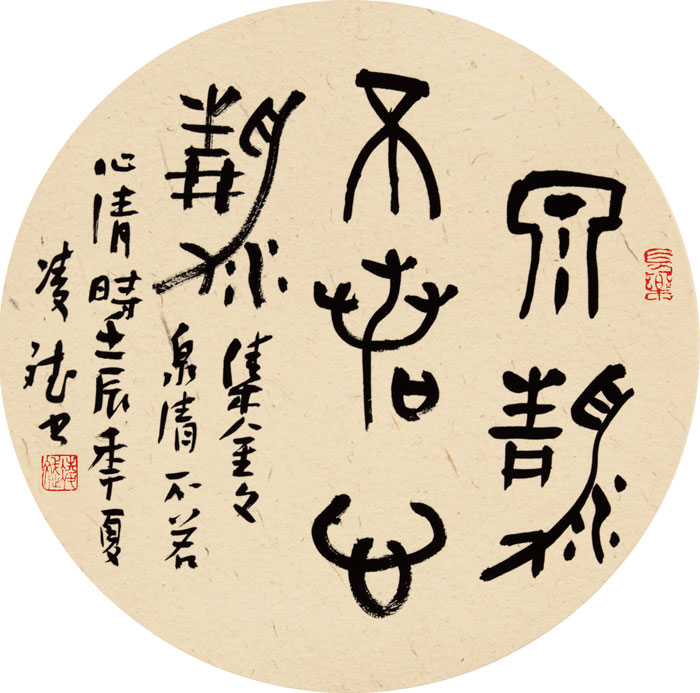 泉清
不若心
清
集金文
泉清不若
心清時壬辰季夏
凌書
長樂